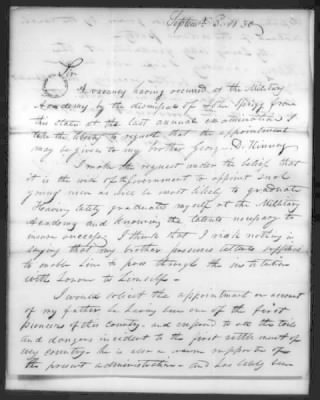 Septemr. 3. 1830
Sir
A vacancy having occured at the Military
Academy by the dismissal of John from
this state at the last annual examination I
take the liberty to request that the appointment
may be given to my brother Geor. D. Kinney
I make the request under the belief that
it is the wish of Government to appoint such
young men as are most likely to graduate
Having lately graduated myself at the Military
Academy and knowing the talents necessary to
insure success, I think that I risk nothing in
saying that my brother possesses talents sufficient
to enable him to pass through the institution
with honour to himself—
I would solicit the appointment on account
of my father he having been one of the first
pioneers of this country, and exposed to all the toils
and dangers incident to the first settlement of
country. he is also a warm supporter of
the present administration and has lately been